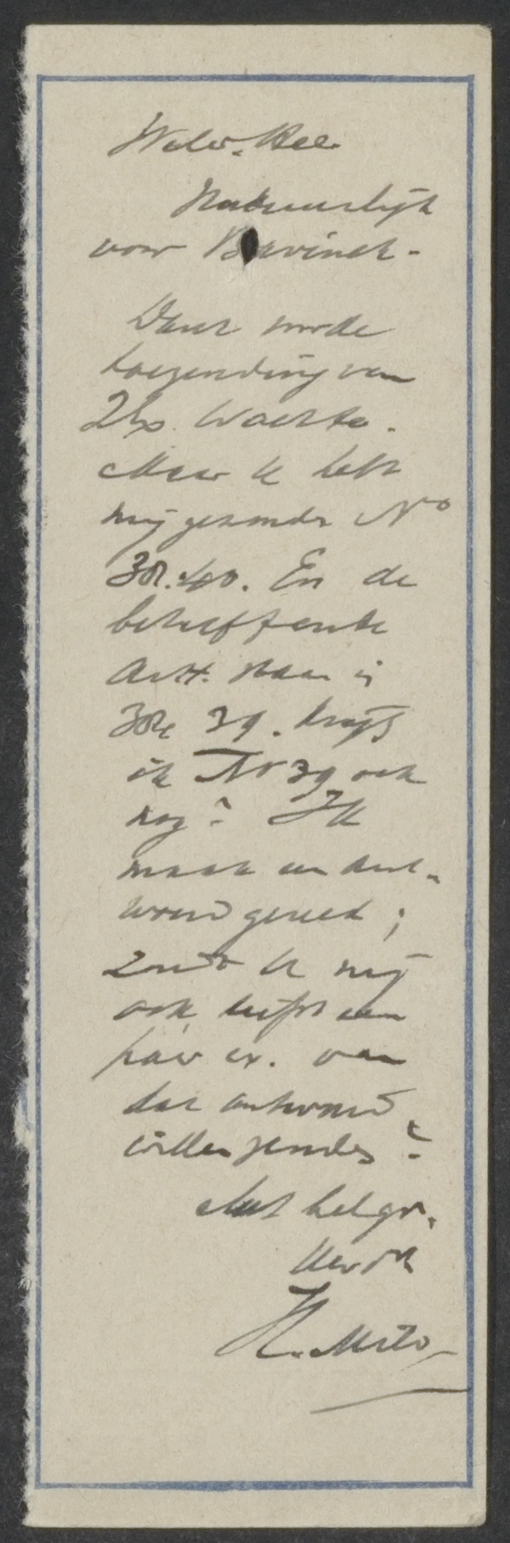 Weled. Heer
Natuurlijk
voor Bavinck.
Dank voor de
toezending van
2 Ex. Wachter.
Maar U hebt
mij gezonden No
38. 40. En de
betreffende
Artt. staan in
38 39. Krijg
ik No 39 ook
nog? Ik
maak een ant-
woord gereed;
zoudt U mij
ook liefst een
paar ex. van
dat antwoord
willen zenden?
Met hchtgr.
Uw dr
H.